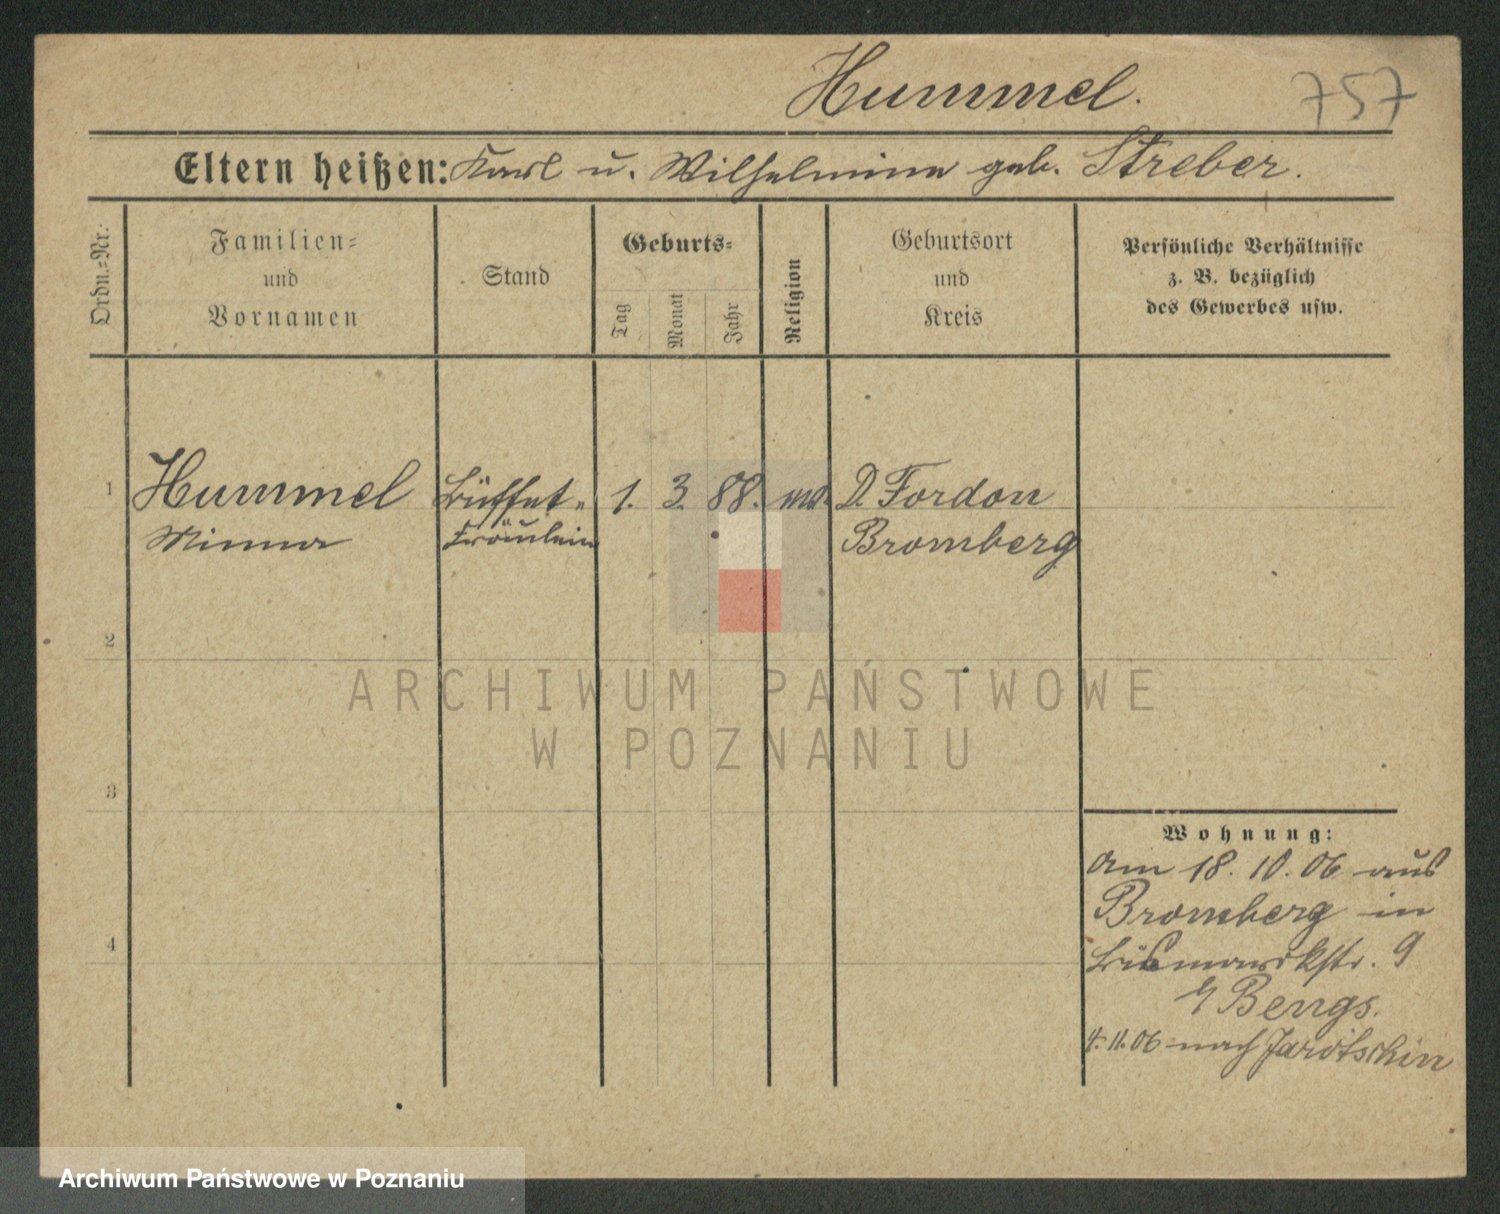 Hummel.
757
Eltern heißen: Karl u. Wilhelmine geb. Streber.
Ordn.-Nr.:
Familien-
und
Vornamen
Stand
Geburts-
Tag
Monat
Jahr
Religion
Geburtsort
und
Kreis
Persönliche Verhältnisse
z. B. bezüglich
des Gewerbes usw.
1 Hummel Büffet- 1. 3. 88. D. Fordon
Minna Fräulein Bromberg
2
ARCHIWUM PAŃSTWOWE
W POZNANIU
3
Wohnung:
Am 18. 10. 06 aus
Bromberg in
4
Bismarckstr. 9
Bengs.
4. 11. 06 nach Jarotschin
Archiwum Państwowe w Poznaniu